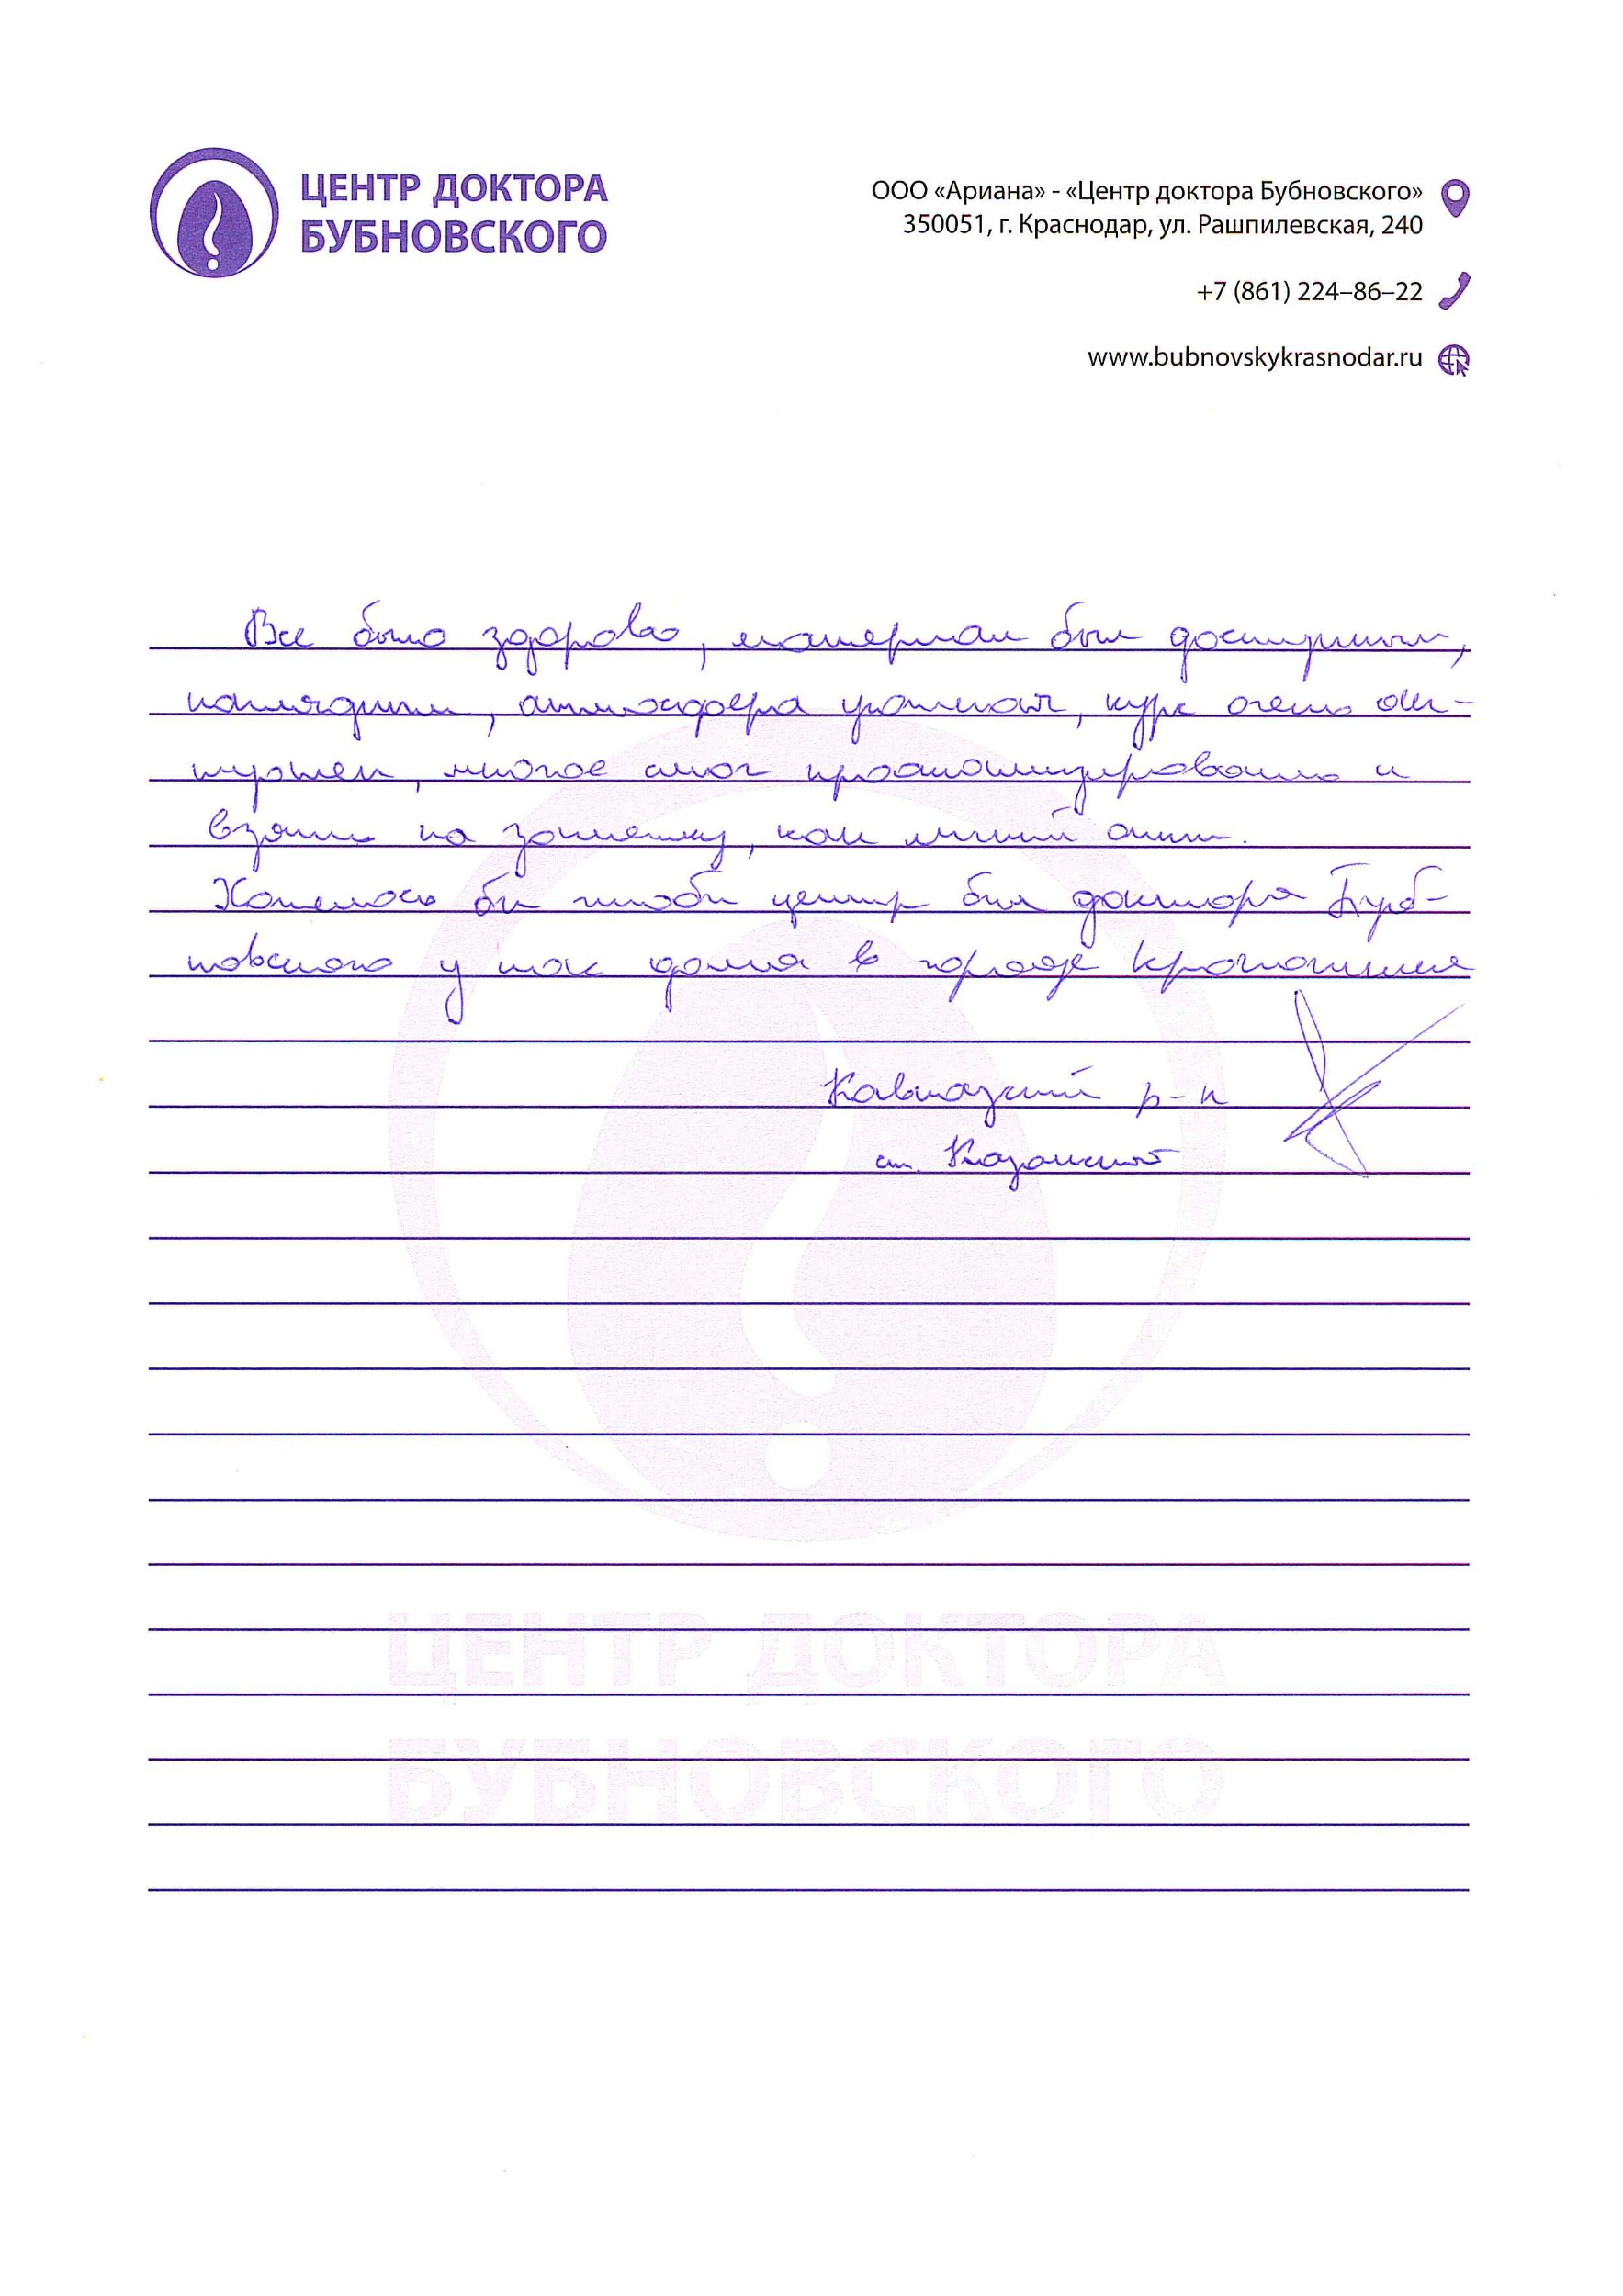 ЦЕНТР ДОКТОРА
БУБНОВСКОГО
ООО «Ариана» - «Центр доктора Бубновского»
350051, г. Краснодар, ул. Рашпилевская, 240
+7 (861) 224–86–22
www.bubnovskykrasnodar.ru
Все было здорово, материал был доступным,
наглядным, атмосфера уютная, курс очень ак-
туален, многое смог проанализировать и
взять на заметку, как личный опыт.
Хотелось бы чтобы центр был доктора Бубб-
новского у нас дома в городе Кропоткине
Кавказский р-н
ст. Казанской
ЦЕНТР ДОКТОРА
БУБНОВСКОГО